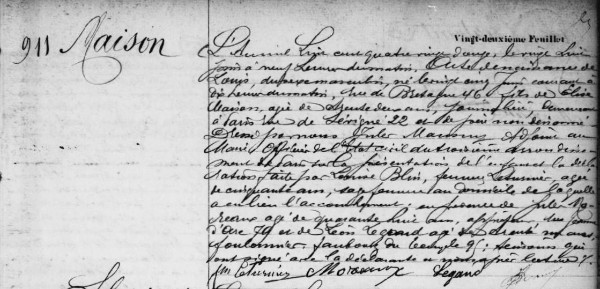 Vingt-deuxième Feuillet
911 Maison
L'An mil huit cent quatre vingt onze, le vingt huit
Juin à neuf heures du matin, Acte de naissance de
Louis, du sexe masculin, né le vingt six Juin courant à
dix heures du matin, rue de Bretagne 46, fils de Elise
Maison, agée de trente deux ans, journalière, demeurant
à Paris rue de Sévigné 22 et de père non dénommé
Dressé par nous, Jules Adjoint au
Maire Officier de l'Etat civil du troisième arrondisse
ment de Paris sur la présentation de l'enfant et la décla
ration faite par Louise Blin, femme Letersier, agée
de cinquante ans, sage femme au domicile de laquelle
a eu lieu l'accouchement; en présence de Jules Mo
reaux agé de quarante huit ans,
79 et de Léon Legrand agé de trente six ans,
faubourg du Temple 9; témoins qui
ont signé avec la déclarante et nous après lecture.
fme Letersier Moreaux Legrand